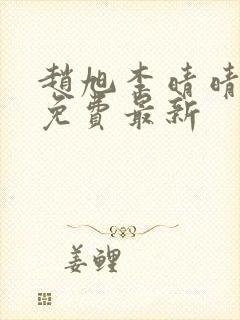 趙旭李晴晴
免費最新
姜鲤